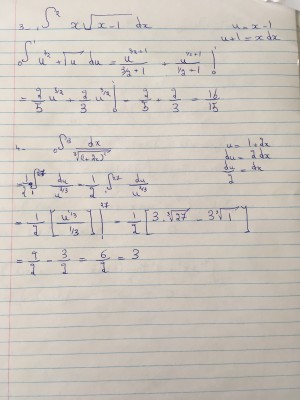 3- ∫² x√(x-1) dx    u = x-1
u+1 = x dx
₀∫¹ u^(1/2) + 1√u du = u^(3/2+1)/(3/2+1) + u^(1/2+1)/(1/2+1) |₀¹
= 2/5 u^(5/2) + 2/3 u^(3/2) |₀¹ = 2/5 + 2/3 = 16/15
4- ₀∫¹³ dx/∛(1+2x)²    u = 1+2x
du = 2 dx
du/2 = dx
= 1/2 ₁∫²⁷ du/u^(2/3) = 1/2 ₁∫²⁷ du/u^(2/3)
= 1/2 [u^(1/3)/(1/3)] |₁²⁷ = 1/2 [3·∛27 - 3∛1]
= 9/2 - 3/2 = 6/2 = 3